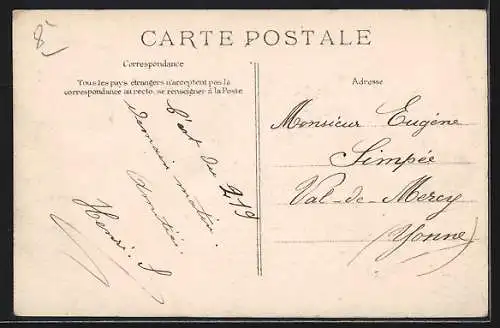 8
CARTE POSTALE
Correspondance
Tous les pays étrangers n'acceptent pas la
correspondance au recto, se renseigner à la Poste
C'est du 219
demain matin.
Amitiés
Henri. S
Adresse
Monsieur Eugène
Simpée
Val-de-Mercy
(Yonne)